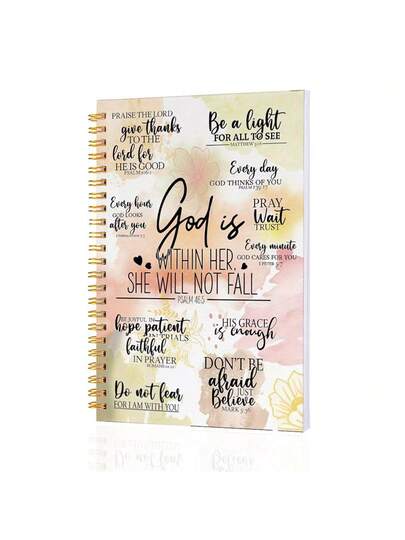 PRAISE THE LORD
give thanks
TO THE
lord for
HE IS GOOD
PSALM 106:1
Be a light
FOR ALL TO SEE
MATTHEW 5:16
Every day
GOD THINKS OF YOU
PSALM 139:17
Every hour
GOD LOOKS
after you
God is
WITHIN HER,
SHE WILL NOT FALL
PSALM 46:5
PRAY
Wait
TRUST
Every minute
GOD CARES FOR YOU
1 PETER 5:7
BE JOYFUL IN
hope patient
IN TRIALS
faithful
IN PRAYER
ROMANS 12:12
HIS GRACE
is enough
DON'T BE
afraid
JUST
Believe
MARK 5:36
Do not fear
FOR I AM WITH YOU